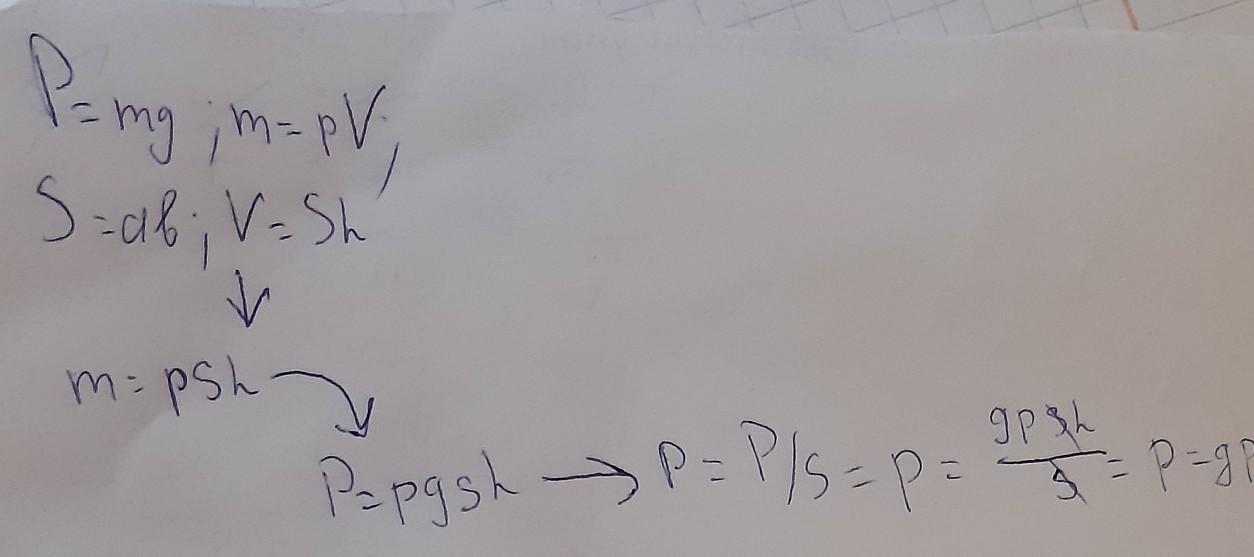 P=mg; m=pV;
S=ab; V=Sh
↓
m=pSh
P=pgsh → P=P/S=p=gpsh/s=p=gp